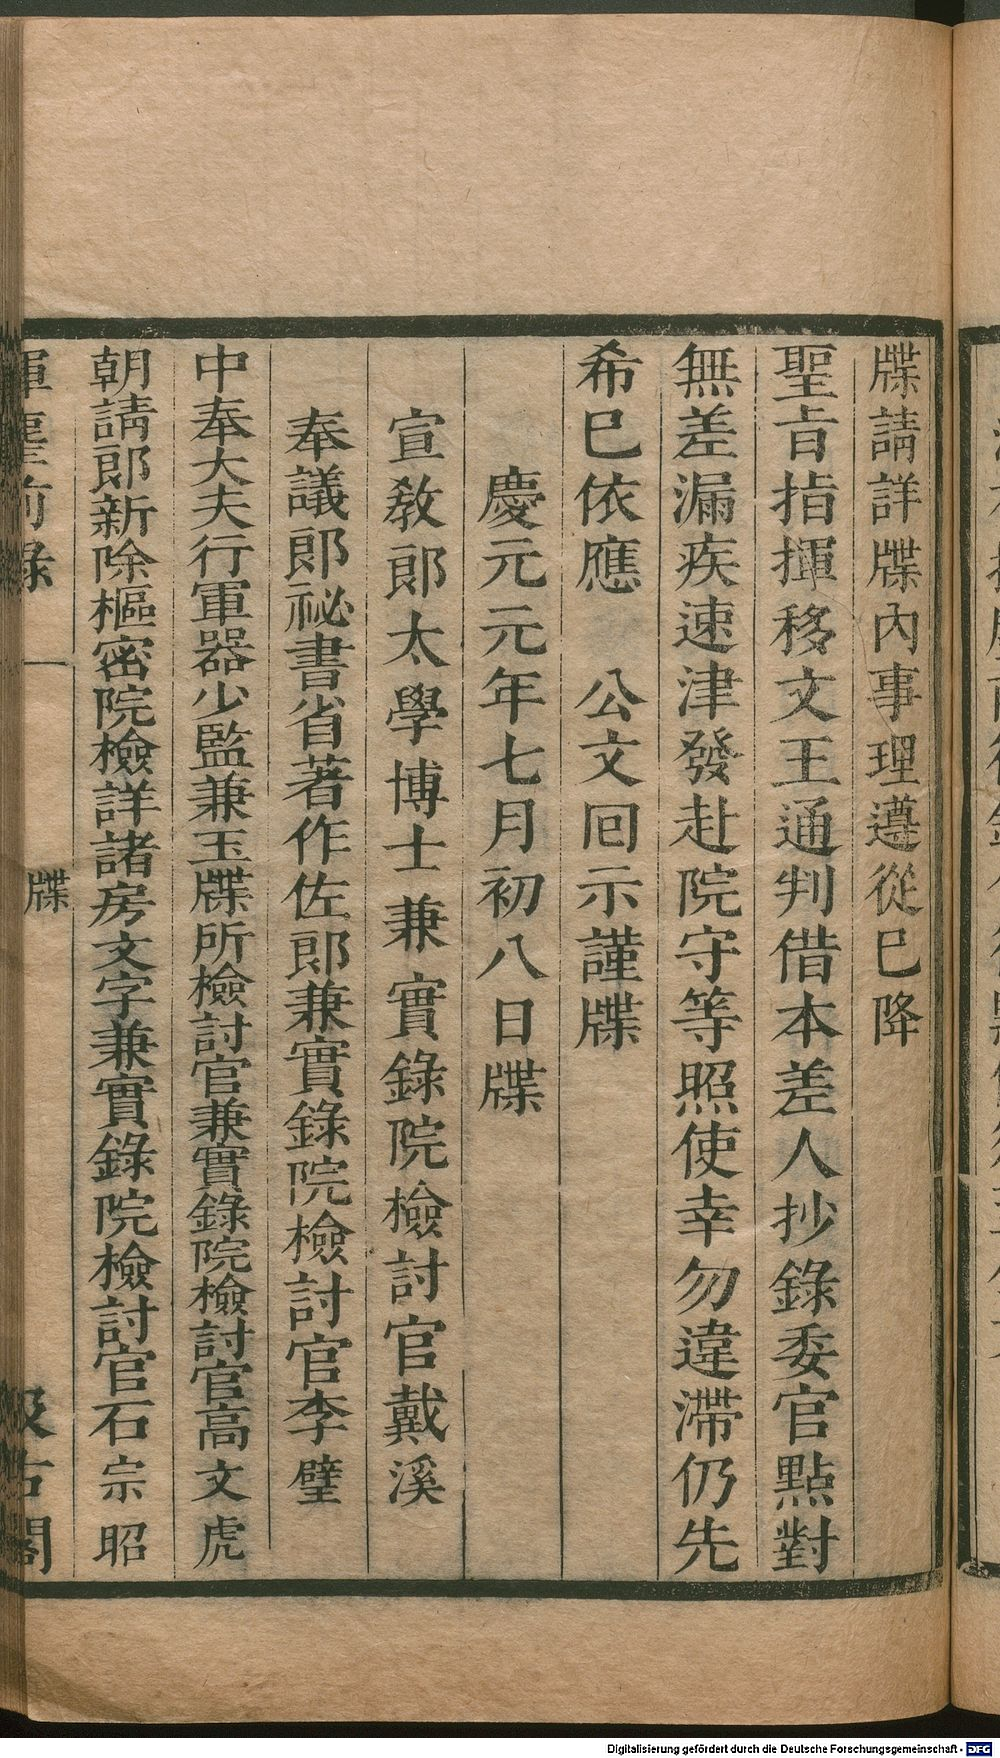 牒請詳牒內事理遵從已降
聖旨指揮移文王通判借本差人抄錄委官點對
無差漏疾速津發赴院守等照使幸勿違滯仍先
希已依應　公文回示謹牒
慶元元年七月初八日牒
宣敎郎太學博士兼實錄院檢討官戴溪
奉議郎祕書省著作佐郎兼實錄院檢討官李璧
中奉大夫行軍器少監兼玉牒所檢討官兼實錄院檢討官高文虎
朝請郎新除樞密院檢詳諸房文字兼實錄院檢討官石宗昭
揮麈前錄　一　牒　汲古閣
Digitalisierung gefördert durch die Deutsche Forschungsgemeinschaft - DFG